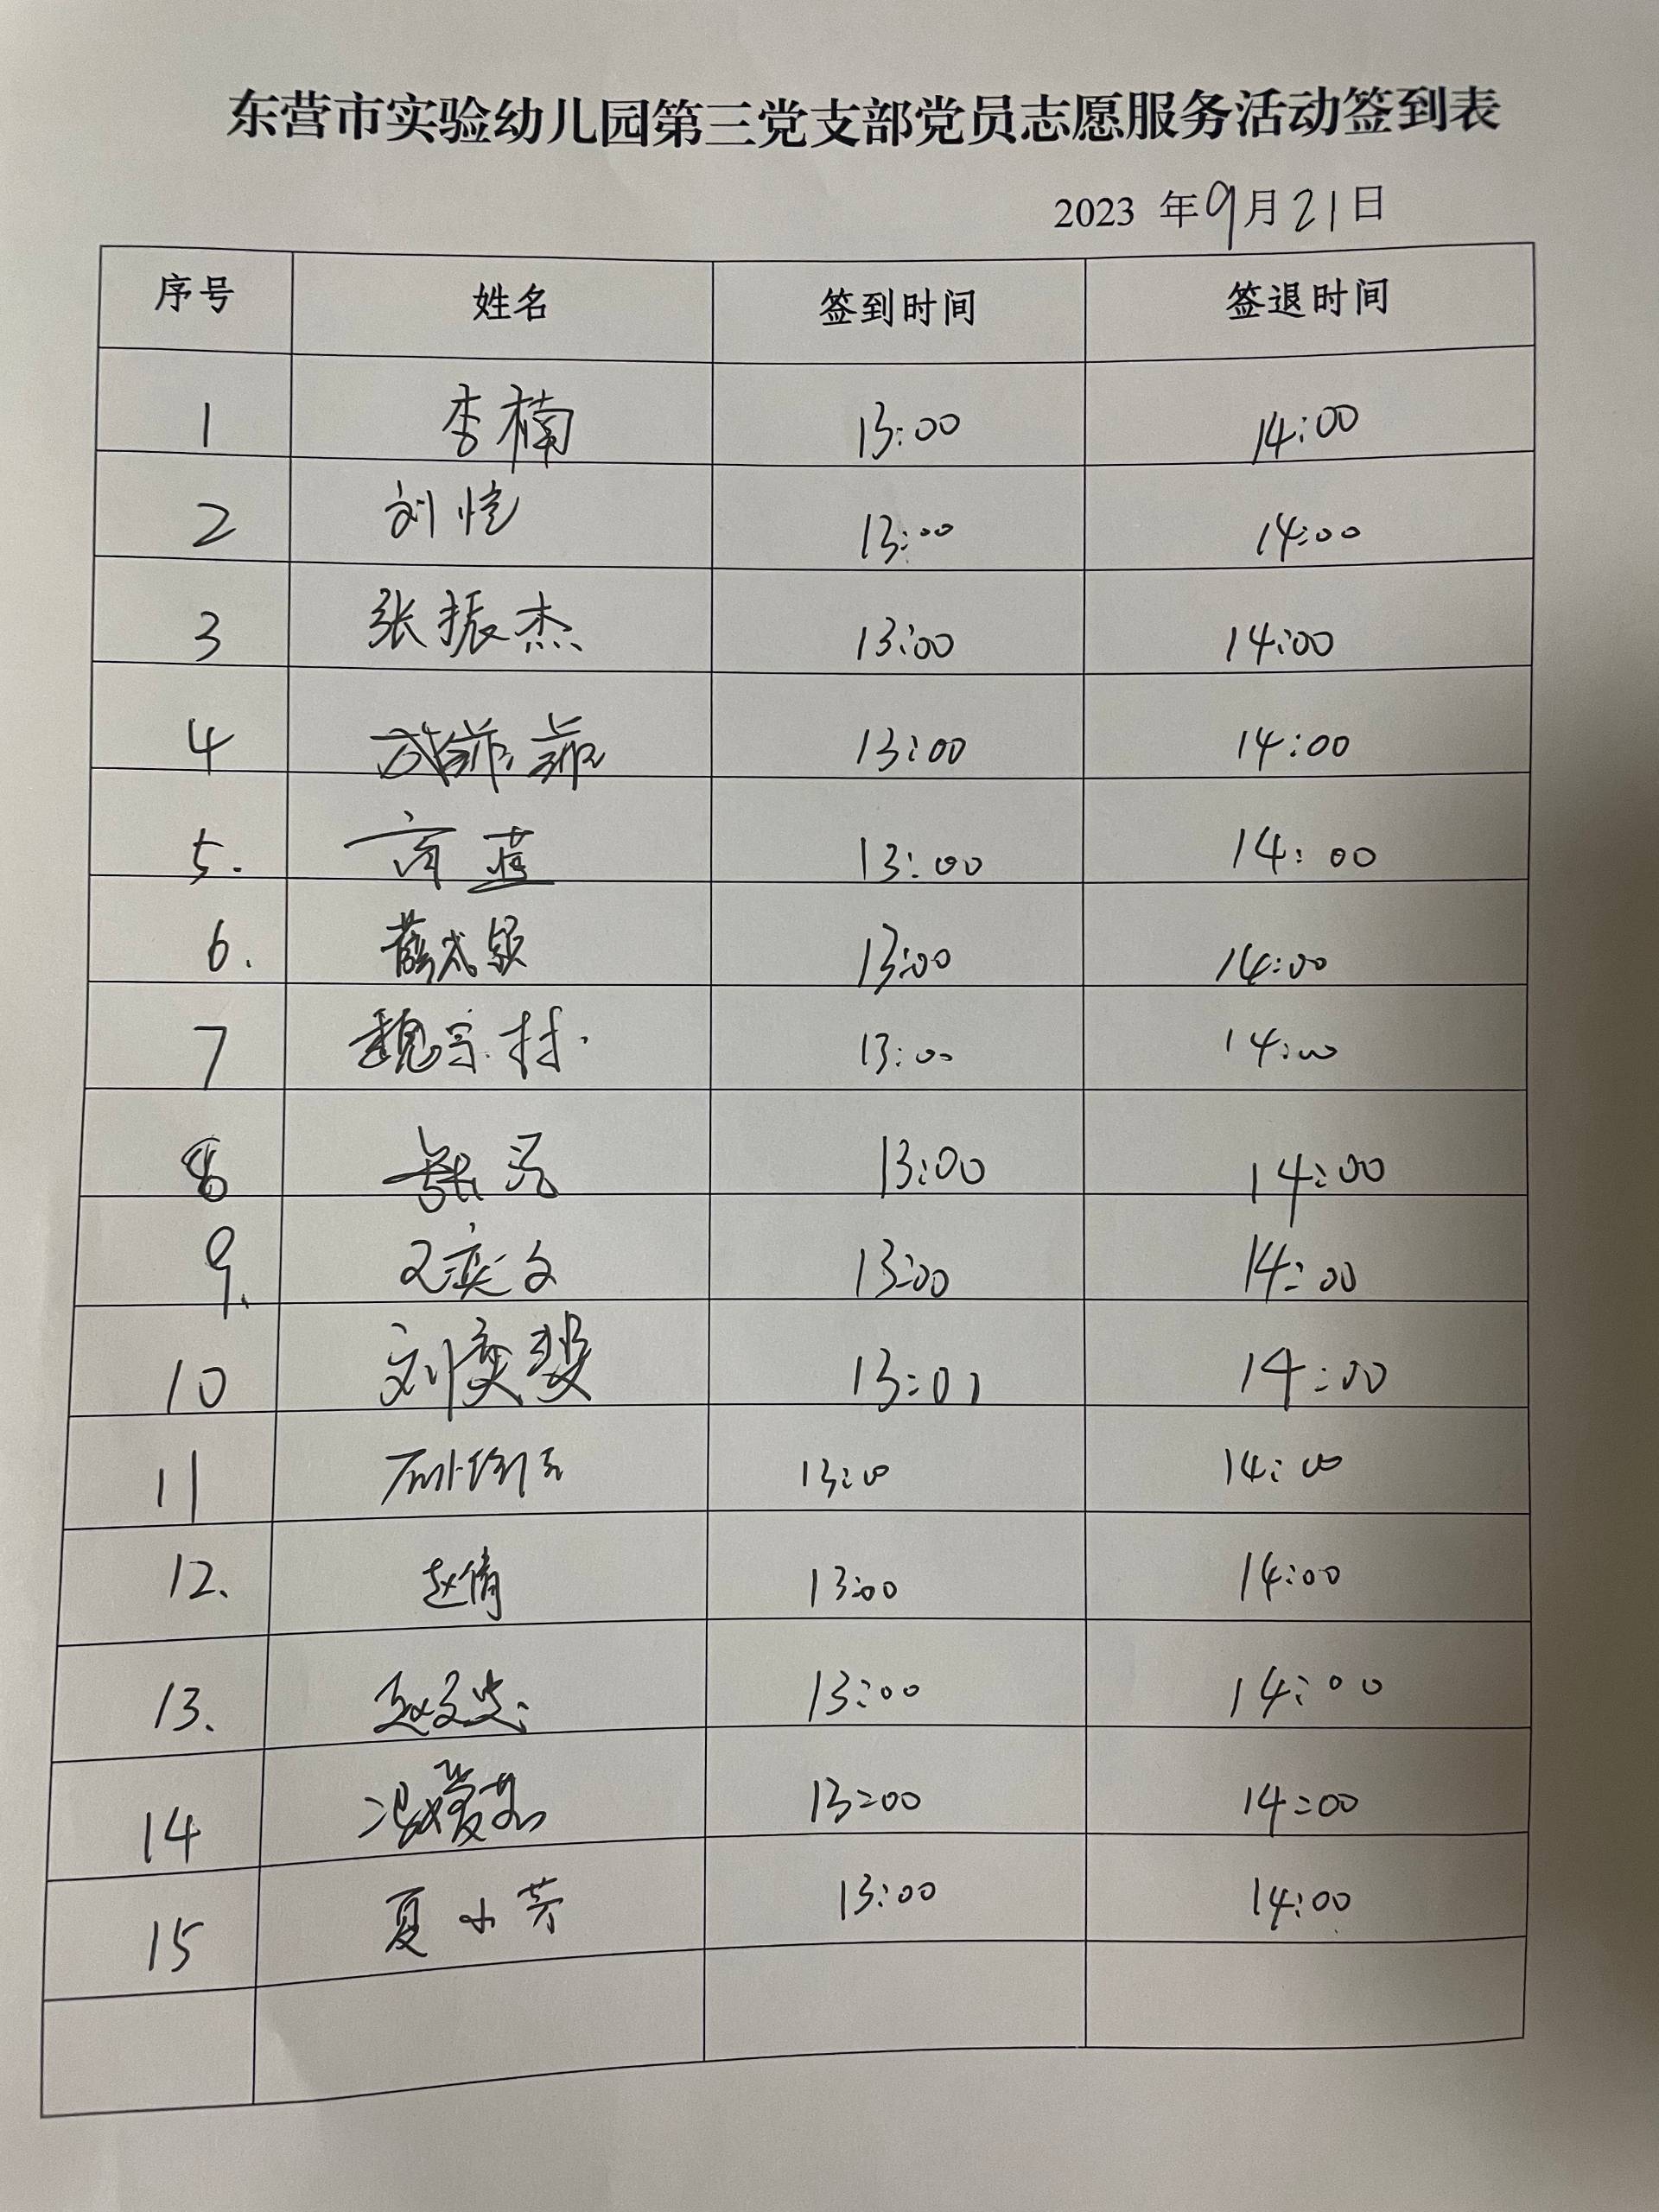 东营市实验幼儿园第三党支部党员志愿服务活动签到表
2023 年9月21日
序号 姓名 签到时间 签退时间
1 李楠 13:00 14:00
2 刘恺 13:00 14:00
3 张振杰 13:00 14:00
4 13:00 14:00
5. 商蓝 13:00 14:00
6. 薛 13:00 14:00
7 魏宗村 13:00 14:00
8 13:00 14:00
9. 文 13:00 14:00
10 刘奕斐 13:01 14:00
11 13:00 14:00
12. 赵倩 13:00 14:00
13. 赵 13:00 14:00
14 冯爱 13:00 14:00
15 夏小芳 13:00 14:00